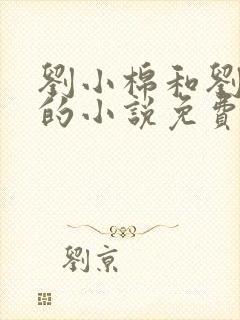 劉小棉和劉
的小説免費
劉京